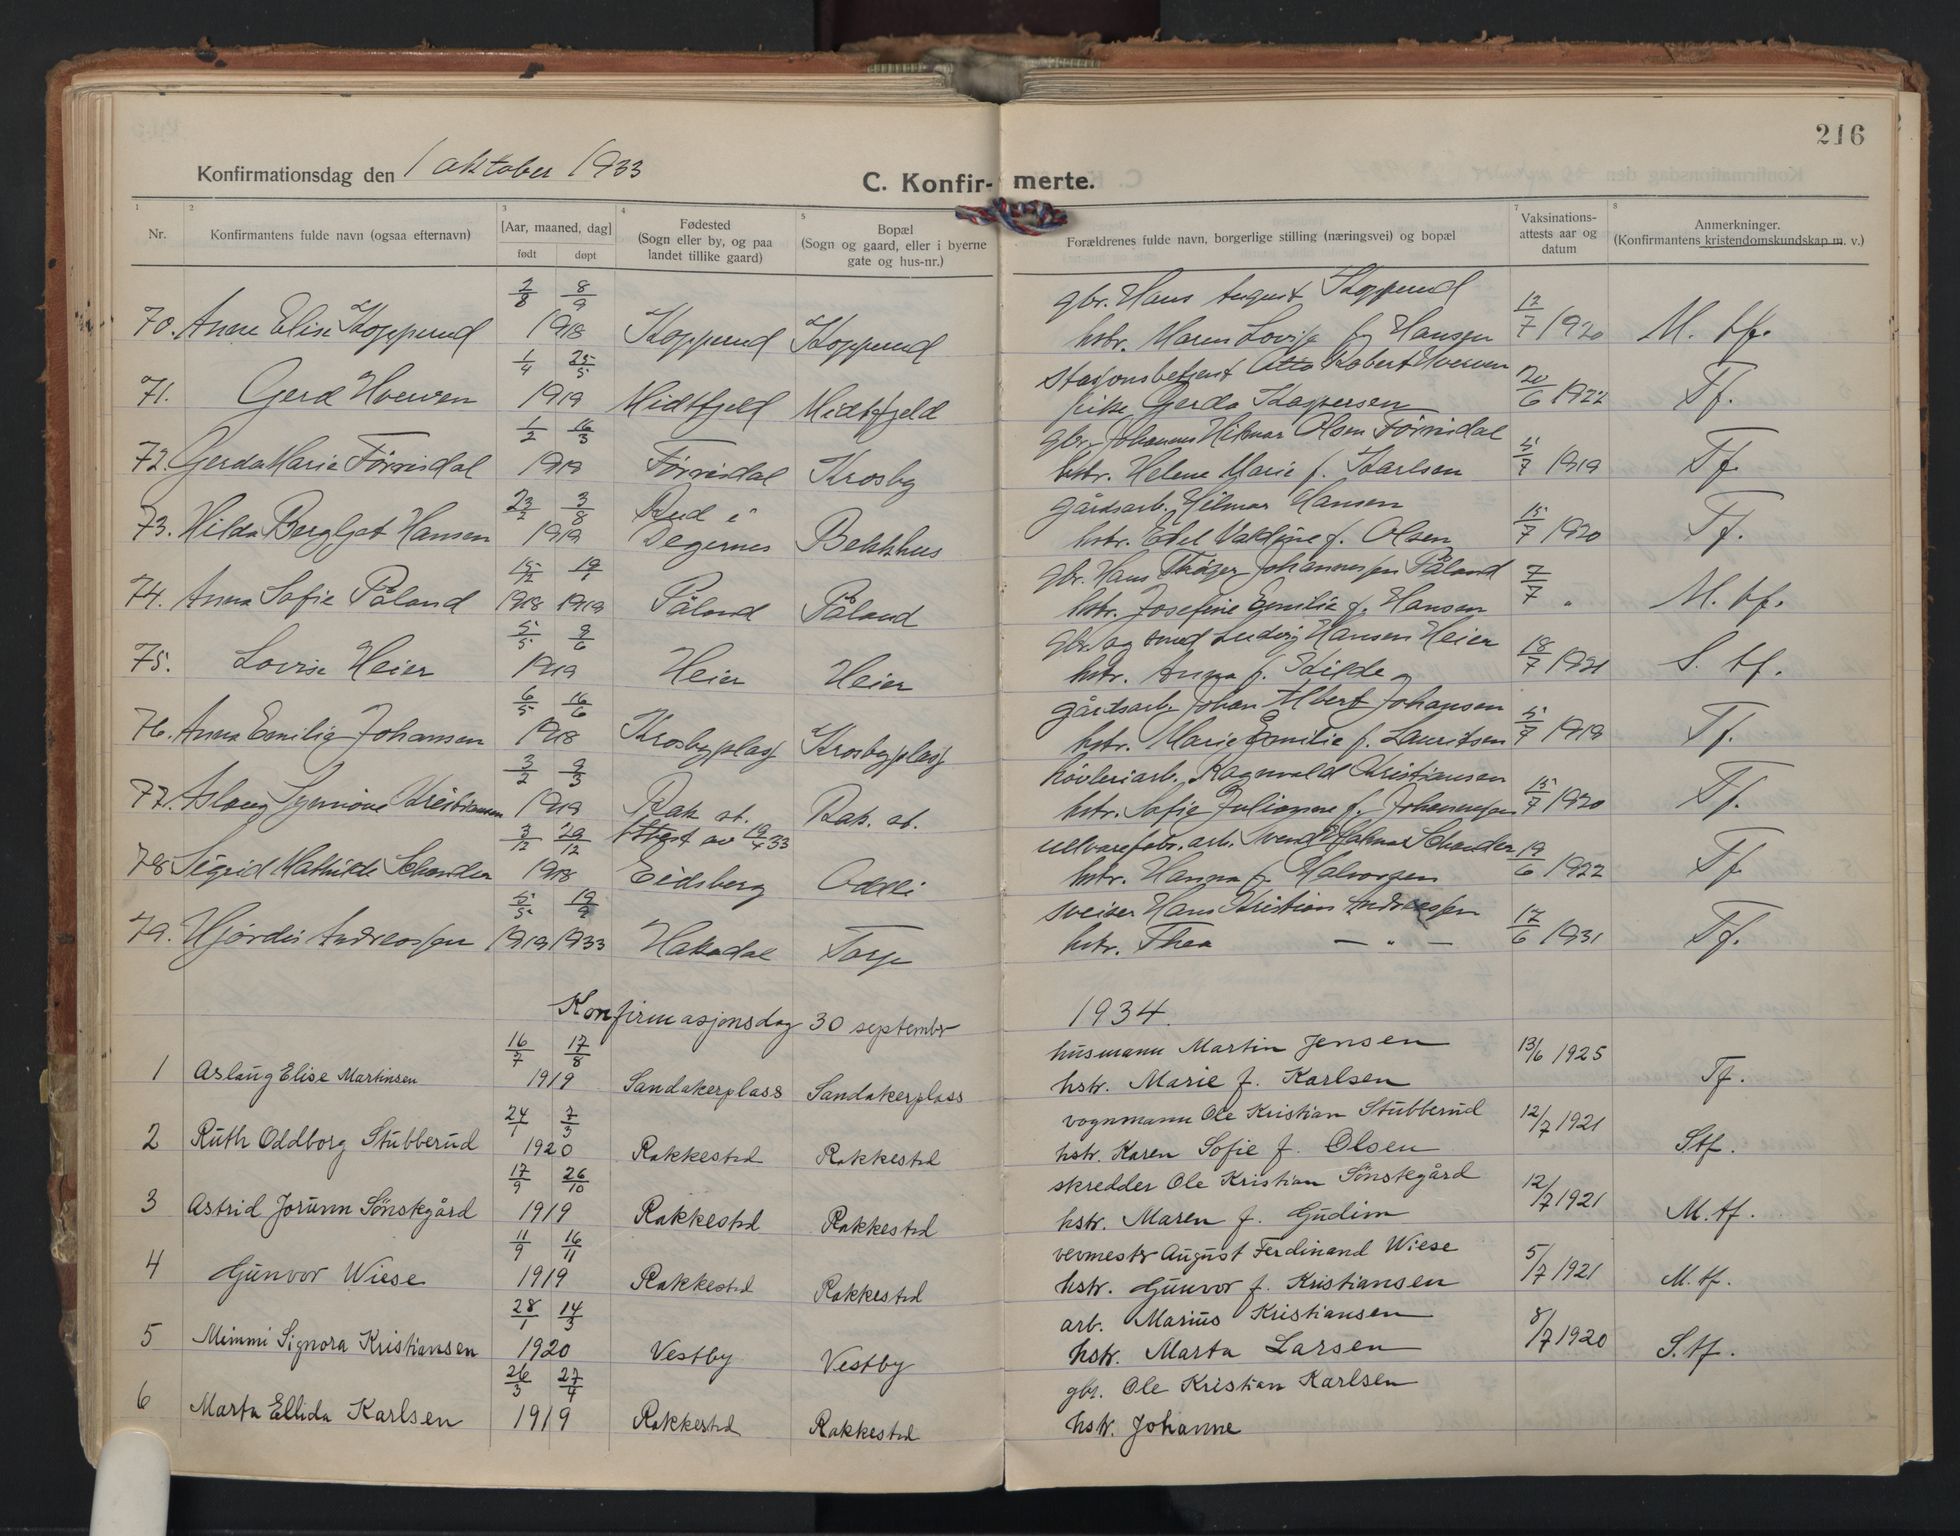 216
Konfirmationsdag den 1 oktober 1933
C. Konfir- merte.
1 2 3 4 5 7 8
Nr.
Konfirmantens fulde navn (ogsaa efternavn)
[Aar, maaned, dag]
født døpt
Fødested
(Sogn eller by, og paa
landet tillike gaard)
Bopæl
(Sogn og gaard, eller i byerne
gate og hus-nr.)
Forældrenes fulde navn, borgerlige stilling (næringsvei) og bopæl
Vaksinations-
attests aar og
datum
Anmerkninger.
(Konfirmantens kristendomskundskap m. v.)
2/8 8/9 gbr. Hans August Kopperud
70. Anne Elise Kopperud 1918 Kopperud Kopperud hstr. Maren Lovise f. Hansen 12/7 1920 M. tf.
1/4 25/5 Stasjonsbetjent Otto Robert Hverven
71. Gerd Hverven 1919 Midtfjeld Midtfjeld pike Gerda Kaspersen 20/6 1922 Tf.
1/2 16/3 gbr. Johannes Hilmar Olsen Förrisdal
72. Gerda Marie Förrisdal 1919 Förrisdal Krosby hstr. Helene Marie f. Karlsen 5/7 1919 Tf.
23/2 3/8 Rud i gårdsarb. Hilmar Hansen
73. Hilda Bergljot Hansen 1919 Degernes Bekkhus hstr. Edel Valdine f. Olsen 15/7 1920 Tf.
15/12 19/1 gbr. Hans Thöger Johannessen Påland
74. Anna Sofie Påland 1918 1919 Påland Påland hstr. Josefine Emilie f. Hansen 7/7 " M. tf.
5/5 9/6 gbr. og smed Ludvig Hansen Heier
75. Lovise Heier 1919 Heier Heier hstr. Anna f. Kilde 18/7 1921 S. tf.
6/5 16/6 gårdsarb. Johan Albert Johansen
76. Anna Emilie Johansen 1918 Krosbyplass Krosbyplass hstr. Marie Emilie f. Lauritsen 5/7 1919 Tf.
3/2 9/3 hövleriarb. Ragnvald Kristiansen
77. Aslaug Synnöve Kristiansen 1919 Rak. st. Rak. st. hstr. Sofie Julianne f. Johannessen 15/7 1920 Tf.
3/12 29/12 Attest av 19/4 33 ullvarefabr. arb. Svend Hjalmar Schander
78. Sigrid Mathilde Schander 1918 Eidsberg Oddli hstr. Hanna f. Halvorsen 19/6 1922 Tf.
5/5 19/9 sveiser Hans Kristian Andreassen
79. Hjördis Andreassen 1919 1933 Hakadal Torp hstr. Thea — " — 17/6 1931 Tf.
Konfirmasjonsdag 30 septembr 1934.
16/7 17/8 husmann Martin Jensen
1 Aslaug Elise Martinsen 1919 Sandakerplass Sandakerplass hstr. Marie f. Karlsen 13/6 1925 Tf.
24/1 7/3 vognmann Ole Kristian Stubberud
2 Ruth Oddborg Stubberud 1920 Rakkestad Rakkestad hstr. Karen Sofie f. Olsen 12/7 1921 Stf.
17/9 26/10 skredder Ole Kristian Sönskegård
3 Astrid Jorunn Sönskegård 1919 Rakkestad Rakkestad hstr. Maren f. Gudim 12/7 1921 M. tf.
11/9 16/11 vevmestr August Ferdinand Wiese
4 Gunvor Wiese 1919 Rakkestad Rakkestad hstr. Gunvor f. Kristiansen 5/7 1921 M. tf.
28/1 14/3 arb. Marius Kristiansen
5 Mimmi Signora Kristiansen 1920 Vestby Vestby hstr. Marta Larsen 8/7 1920 S. tf.
26/3 27/4 gbr. Ole Kristian Karlsen
6 Marta Ellida Karlsen 1919 Rakkestad Rakkestad hstr. Johanne